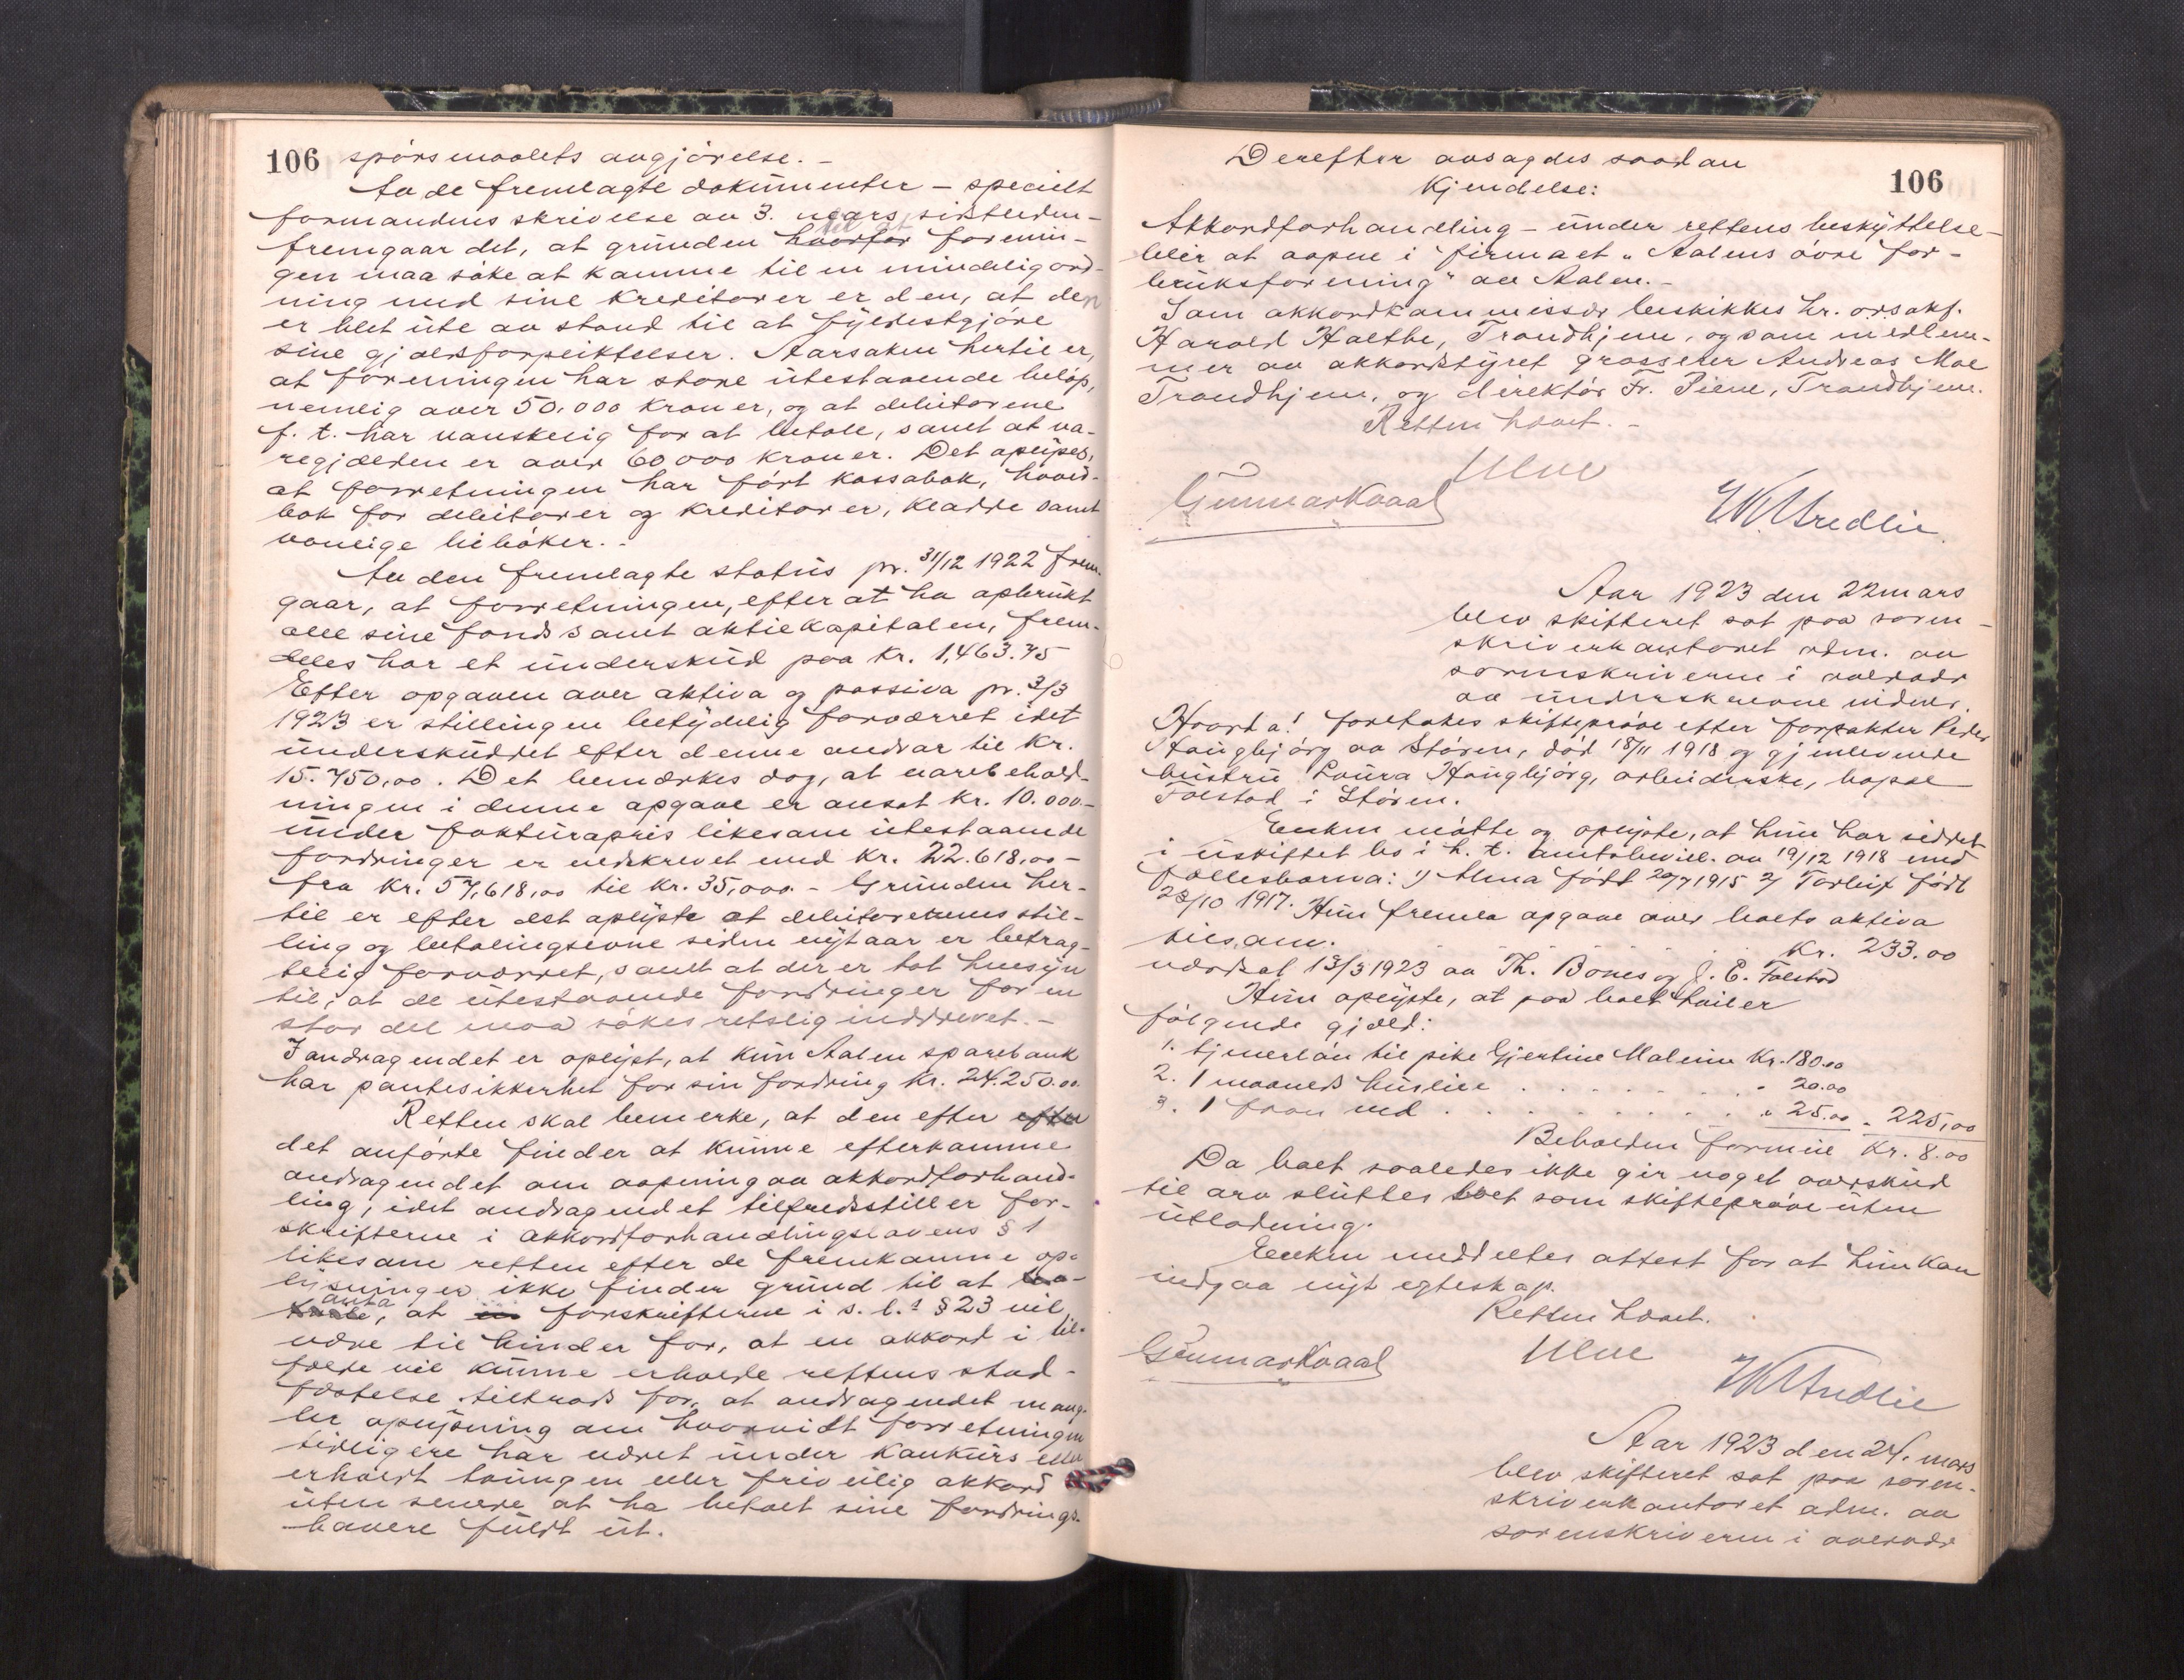 106 spörsmaalets avgjörelse. –
Av de fremlagte dokumenter – specielt
formandens skrivelse av 3. mars sistleden –
fremgaar det, at grunden til at forenin-
gen maa söke at komme til en mindelig ord-
ning med sine kreditorer er den, at den
er blet ute av stand til at fyldestgjöre
sine gjældsforpliktelser. Aarsaken hertil er,
at foreningen har store utestaaende belöp,
nemlig over 50.000 kroner, og at debitorene
f. t. har vanskelig for at betale, samt at va-
regjælden er over 60000 kroner. Det oplyses,
at forretningen har fört kassabok, hoved-
bok for debitorer og kreditorer, kladde samt
vanlige bibøker. –
Av den fremlagte status pr. 31/12 1922 frem-
gaar, at forretningen, efter at ha opbrukt
alle sine fond samt aktiekapitalen, frem-
deles har et underskud paa kr. 1,463.75
Efter opgaven over aktiva og passiva pr. 3/3
1923 er stillingen betydelig forværret idet
underskuddet efter denne andrar til kr.
15.750,00. Det bemærkes dog, at varebehold-
ningen i denne opgave er ansat kr. 10.000.–
under fakturapris likesom utestaaende
fordringer er nedskrevet med kr. 22.618,00 –
fra kr. 57,618,00 til kr. 35,000. – Grunden her-
til er efter det oplyste at debitorernes stil-
ling og betalingsevne siden nytaar er betrag-
telig forværret, samt at der er tat hensyn
til, at de utestaaende fordringer for en
stor del maa sökes retslig inddrevet. –
I andragendet er oplyst, at kun Aalen sparebank
har pantesikkerhet for sin fordring kr. 24.250.00
Retten skal bemerke, at den efter efter
det anförte finder at kunne efterkomme
andragendet om aapning av akkordforhand-
ling, idet andragendet tilfredsstiller for-
skrifterne i akkordforhandlingslovens § 1
likesom retten efter de fremkomne op-
lysninger ikke finder grund til at
anta, at forskrifterne i s. l.s § 23 vil
være til hinder for, at en akkord i til-
fælde vil kunne erholde rettens stad-
fæstelse tiltrods for, at andragendet mang-
ler oplysning om hvorvidt forretningen
tidligere har været under konkurs eller
erholdt tvungen eller frivillig akkord
uten senere at ha betalt sine fordrings-
havere fuldt ut.
Derefter avsagdes saadan
Kjendelse:
106
Akkordforhandling – under rettens beskyttelse –
blir at aapne i firmaet "Aalens övre for-
bruksforening" av Aalen. –
Som akkordkommissær beskikkes hr. o.r.sakf.
Harald Halthe, Trondhjem, og som medlem-
mer av akkordstyret grosserer Andreas Moe
Trondhjem, og direktör Fr. Piene, Trondhjem.
Retten hævet. –
Ulve
Gunnar Kvaal
Aar 1923 den 22 mars
blev skifteret sat paa soren-
skriverkontoret adm. av
sorenskriveren i overvær
av underskrevne vidner.
Hvorda! foretokes skifteprøve efter forpakter Peder
Haugbjörg av Stören, död 18/11 1918 og gjenlevende
hustru Laura Haugbjörg, arbeiderske, bopæl
Folstad i Stören.
Enken mötte og oplyste, at hun har siddet
i uskiftet bo i h. t. amtsbevill. av 19/12 1918 med
fællesbarna: 1) Alma född 20/7 1915 2) Torleif född
23/10 1917. Hun fremla opgave over boets aktiva
tilsam. Kr. 233.00
vurderet 13/3 1923 av Th. Bones og J. E. Folstad
Hun oplyste, at paa boet hviler
fölgende gjæld:
1. tjenerlön til pike Gjertine Malmin Kr. 180.00
2. 1 maaneds husleie . . . . . . . . " 20.00
3. 1 favn ved . . . . . . . . . . . " 25.00 " 225,00
Beholden formue Kr. 8.00
Da boet saaledes ikke gir noget overskud
til arv sluttes boet som skifteprøve uten
utlodning.
Enken meddeltes attest for at hun kan
indgaa nyt egteskap.
Retten hævet.
Ulve
Gunnar Kvaal
Aar 1923 den 24. mars
blev skifteret sat paa soren-
skriverkontoret adm. av
sorenskriveren i overvær